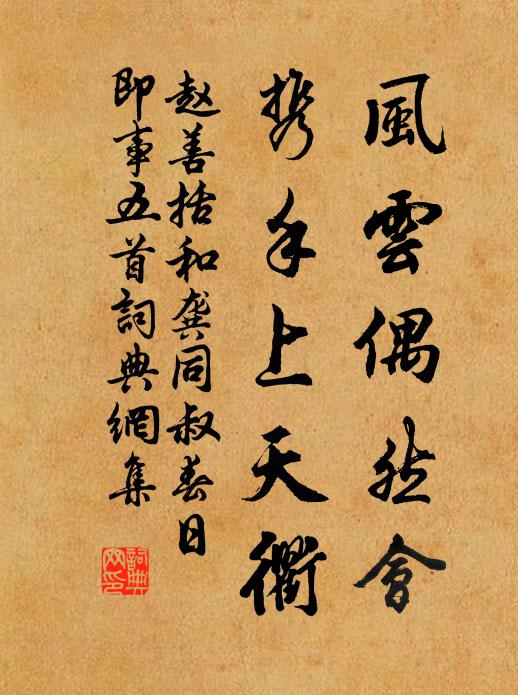 風雲偶然會
携手上天衢
赵善括和龚同叔春日
即事五首詞典網集
詞典
网印